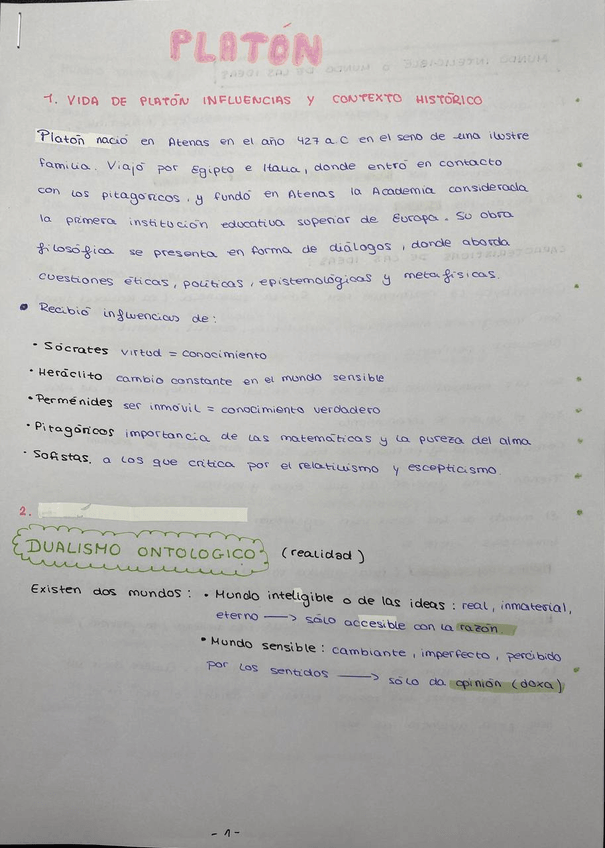 PLATÓN
1. VIDA DE PLATÓN INFLUENCIAS Y CONTEXTO HISTÓRICO
Platón nació en Atenas en el año 427 a.C en el seno de una ilustre
familia. Viajó por Egipto e Italia, donde entró en contacto
con los pitagóricos, y fundó en Atenas la Academia considerada
la primera institución educativa superior de Europa. Su obra
filosófica se presenta en forma de diálogos, donde aborda
cuestiones éticas, políticas, epistemológicas y metafísicas.
• Recibió influencias de:
• Sócrates virtud = conocimiento
• Heráclito cambio constante en el mundo sensible
• Perménides ser inmóvil = conocimiento verdadero
• Pitagóricos importancia de las matemáticas y la pureza del alma
• Sofistas, a los que critica por el relativismo y escepticismo.
2.
DUALISMO ONTOLOGICO (realidad)
Existen dos mundos: • Mundo inteligible o de las ideas: real, inmaterial,
eterno → sólo accesible con la razón.
• Mundo sensible: cambiante, imperfecto, percibido
por los sentidos → sólo da opinión (doxa)
-1-